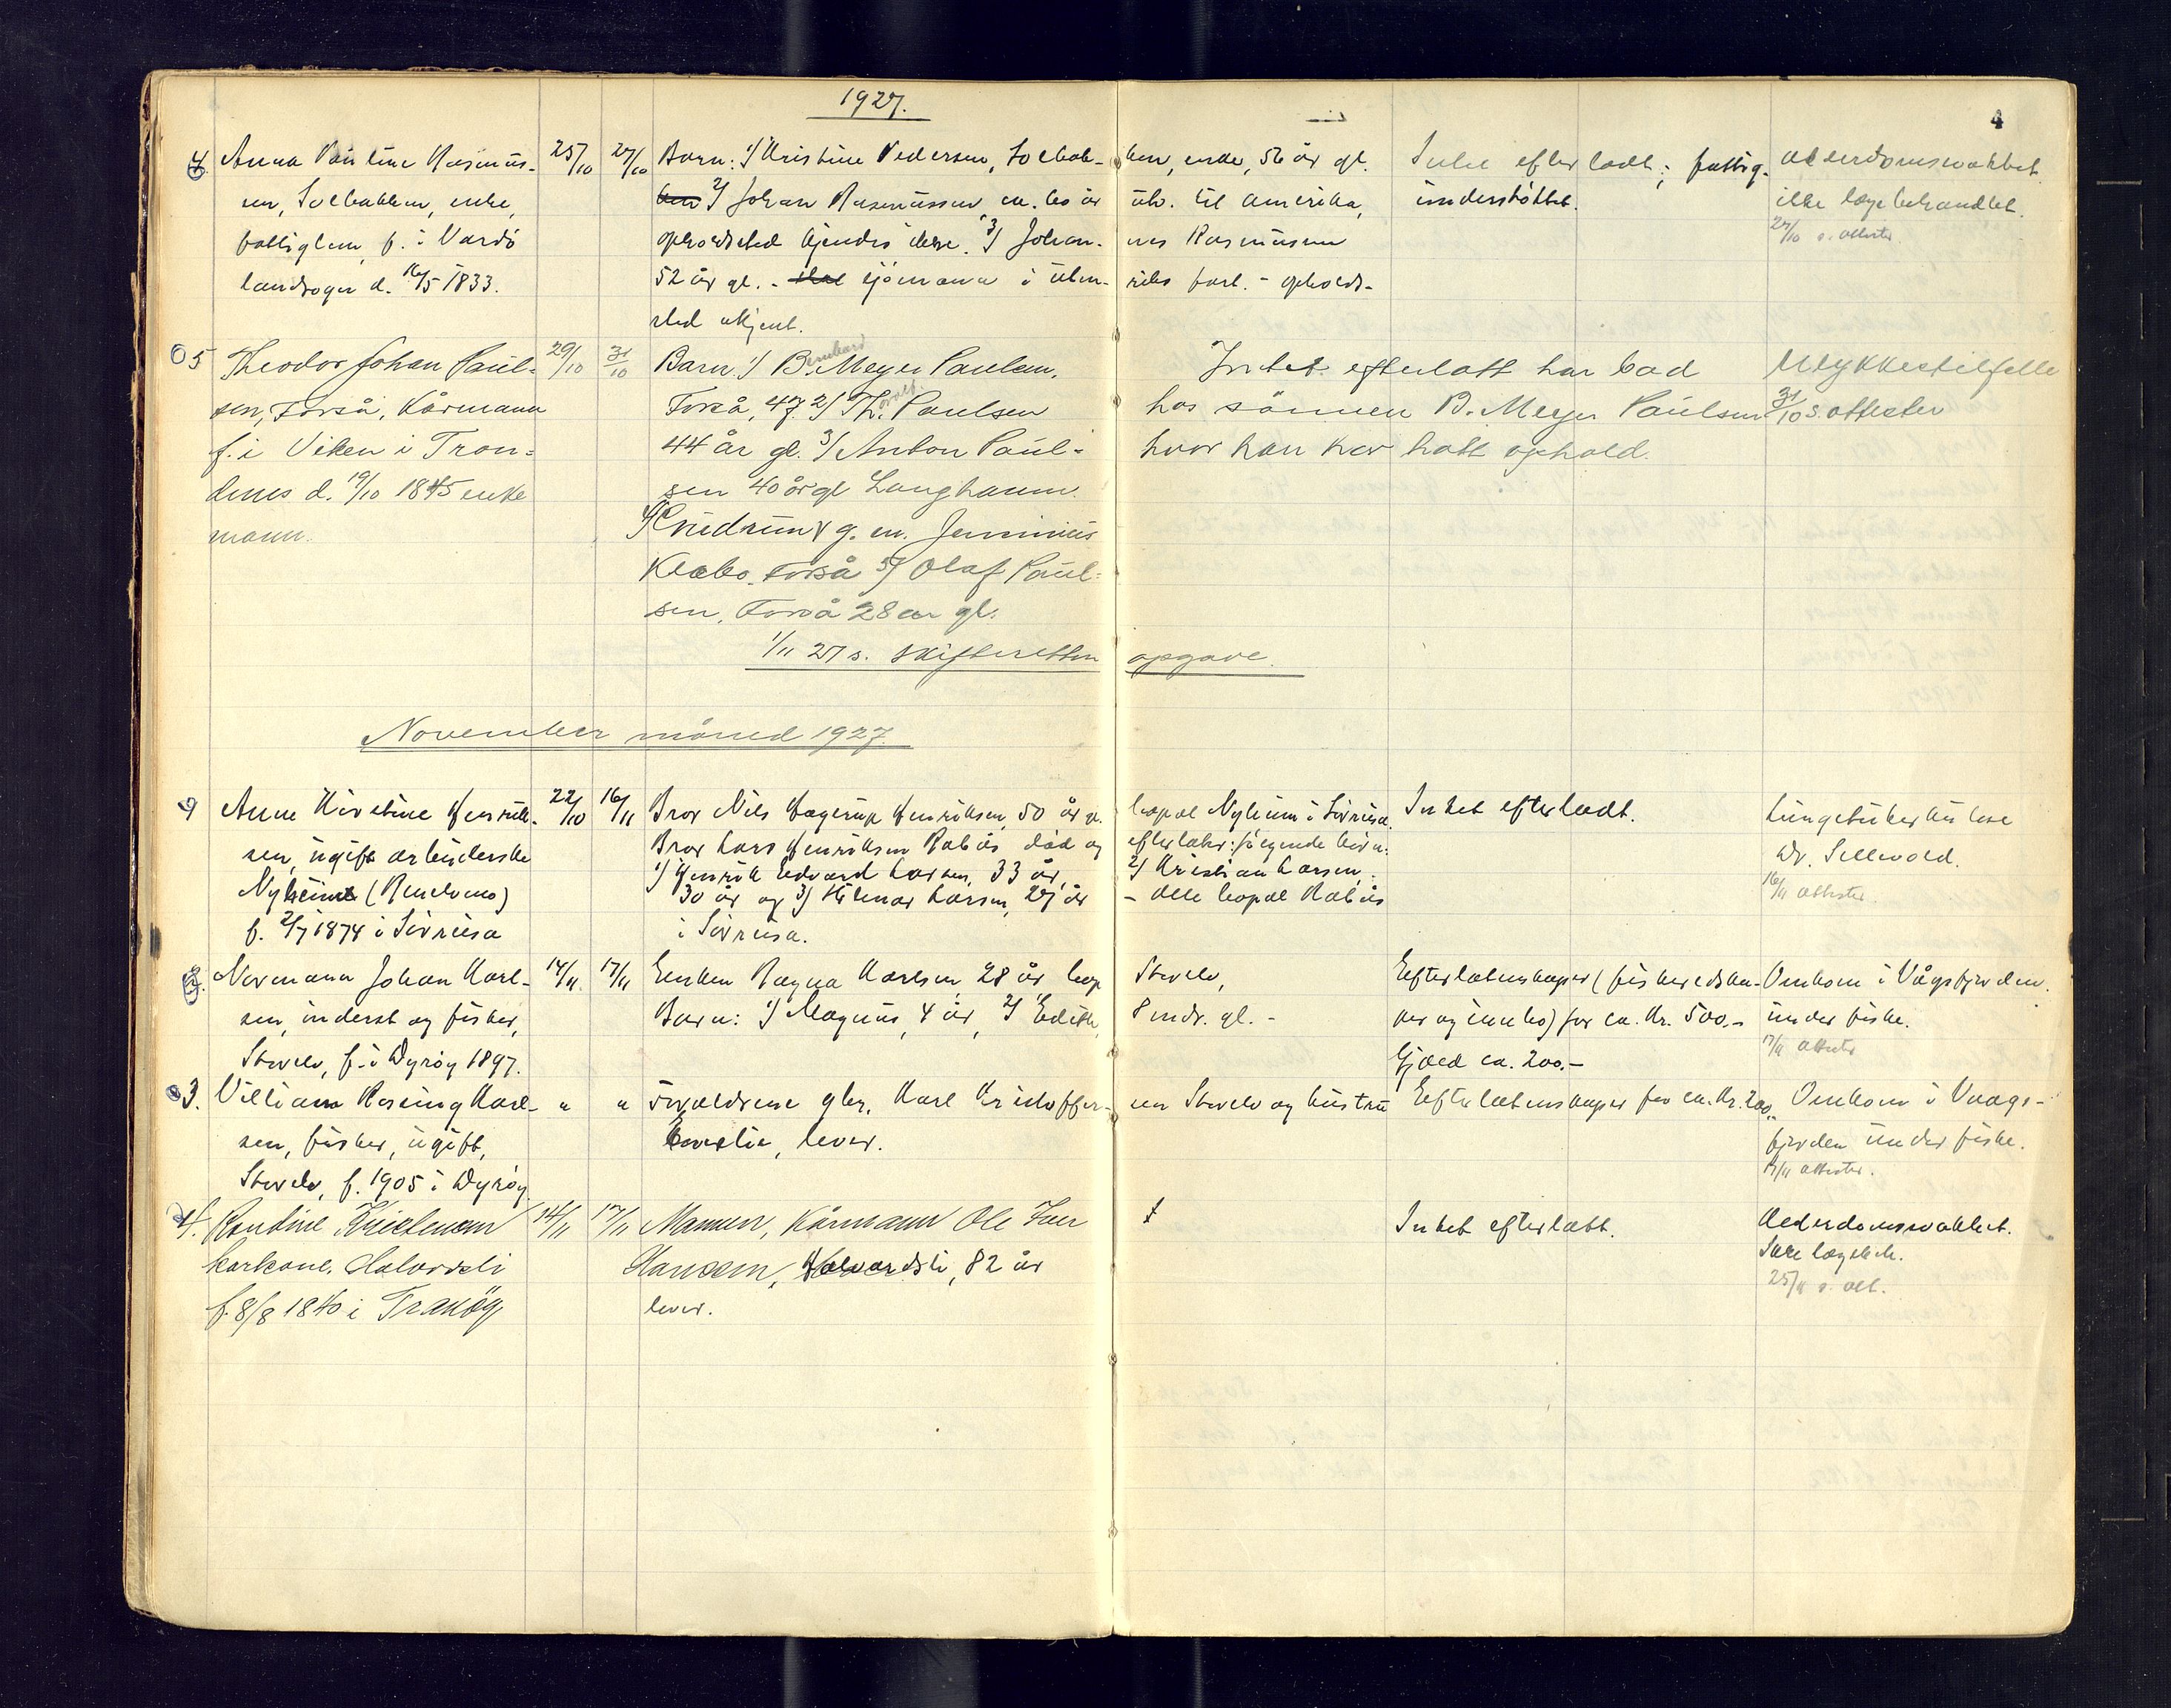 1927.
4
4. Anna Pauline Rasmus-
sen, Solbakken, enke,
fattiglem, f. i Vardö
landsogn d. 16/5 1833.
25/10
27/10
Barn: 1/ Kristine Pedersen, Solbak-
ken, enke, 56 år gl.
2/ Johan Rasmussen, ca. 60 år
utv. til Amerika,
opholdssted kjendes ikke. 3/ Johan-
nes Rasmussen
52 år gl. - sjömann i uten-
riks fart. - opholds-
sted ukjent.
Intet efterladt; fattig-
understöttet.
Alderdomssvakhet
ikke lægebehandlet.
27/10 s. attester
5 Theodor Johan Paul-
sen, Forså, Kårmann
f. i Viken i Tron-
denes d. 19/10 1845 enke
mann.
29/10
31/10
Barn. 1/ Bernhard Meyer Paulsen,
Forså, 47. 2/ Th. Paulsen
44 år gl. 3/ Anton Paul-
sen 40 år gl Langhamn.
4/ Gudrun g. m. Jenninus
Klæbo, Forså 5/ Olaf Paul-
sen, Forså 28 år gl.
1/11 27 s. skifteretten opgave.
Intet efterlatt har bod
hos sönnen B. Meyer Paulsen
hvor han har hatt ophold.
Ulykkestilfelle
31/10 s. attester
November måned 1927.
Anne Kirstine Henrik-
sen, ugift arbeiderske
Nyheim
f. 2/7 1874 i Sörreisa
22/10
16/11
Bror Nils Hagerup Henriksen, 50 år gl.
bopæl Nyheim i Sörreisa.
Bror Lars Henriksen Rabås död og
efterlater følgende børn:
1/ Henrik Edvard Larsen, 33 år,
2/ Kristian Larsen,
30 år og 3/ Hilmar Larsen, 27 år
- alle bopæl Rabås
i Sörreisa.
Intet efterladt.
Lungetuberkulose
Dr. Sellevold.
16/11 attester.
2. Normann Johan Karl-
sen, inderst og fisker,
f. i Dyröy 1897.
14/11
17/11
Enken Ragna Karlsen 28 år, bop
Barn: 1/ Magnus, 4 år, 2/ Edith,
8 mdr. gl. -
Efterlatenskaper (fiskeredska-
per og innbo) for ca. Kr. 500.-
Gjæld ca. 200.-
Omkom i Vågsfjorden
under fiske.
17/11 attester
3. Villiam Rosing Karl-
sen, fisker, ugift,
f. 1905 i Dyröy
"
"
Forældrene gbr. Karl Kristoffer-
sen og hustru
lever.
Efterlatenskaper for ca. Kr. 200.-
Omkom i Vaags-
fjorden under fiske.
17/11 attester.
4. Randine Kristensen
kårkone, Halvardsli
f. 8/8 1840 i Tranöy
14/11
17/11
Mannen, Kårmann Ole Iver
Hansen, Halvardsli, 82 år
lever.
Intet efterlatt.
Alderdomssvakhet.
Ikke lægebeh.
25/11 s. att.